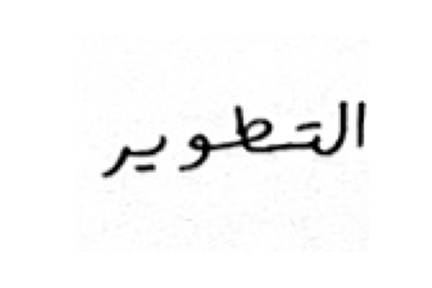 التطوير